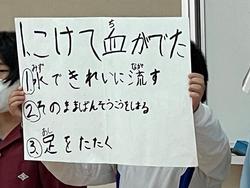 ち
1こけて血がでた
みず なが
①水できれいに流す
②そのままばんそうこうをはる
あし
③足をたたく